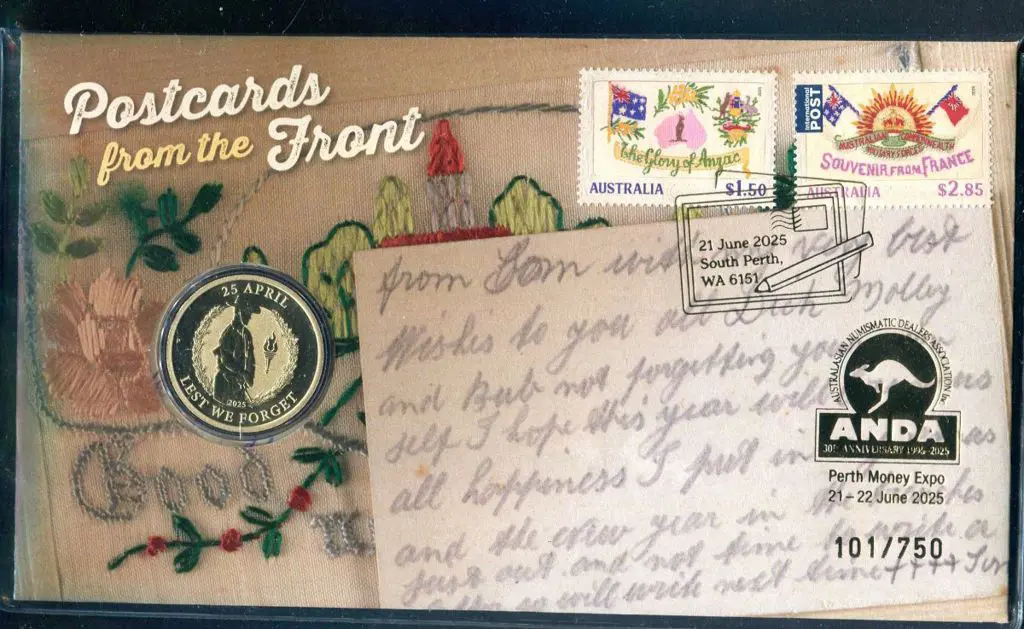 Postcards
from the
Front
The Glory of Anzac
AUSTRALIA $1.50
2025
International
POST
AUSTRALIAN COMMONWEALTH
MILITARY FORCES
SOUVENIR FROM FRANCE
AUSTRALIA $2.85
2025
21 June 2025
South Perth,
WA 6151
25 APRIL
2025
LEST WE FORGET
Good
from
best
Wishes to you all Dick Molly
and not forgetting your
self I hope this year will
all happiness I put in as
and the new year in the
just out and not time to write a
so will write next time ++++
AUSTRALASIAN NUMISMATIC DEALERS ASSOCIATION Inc
ANDA
30th ANNIVERSARY 1995-2025
Perth Money Expo
21-22 June 2025
101/750